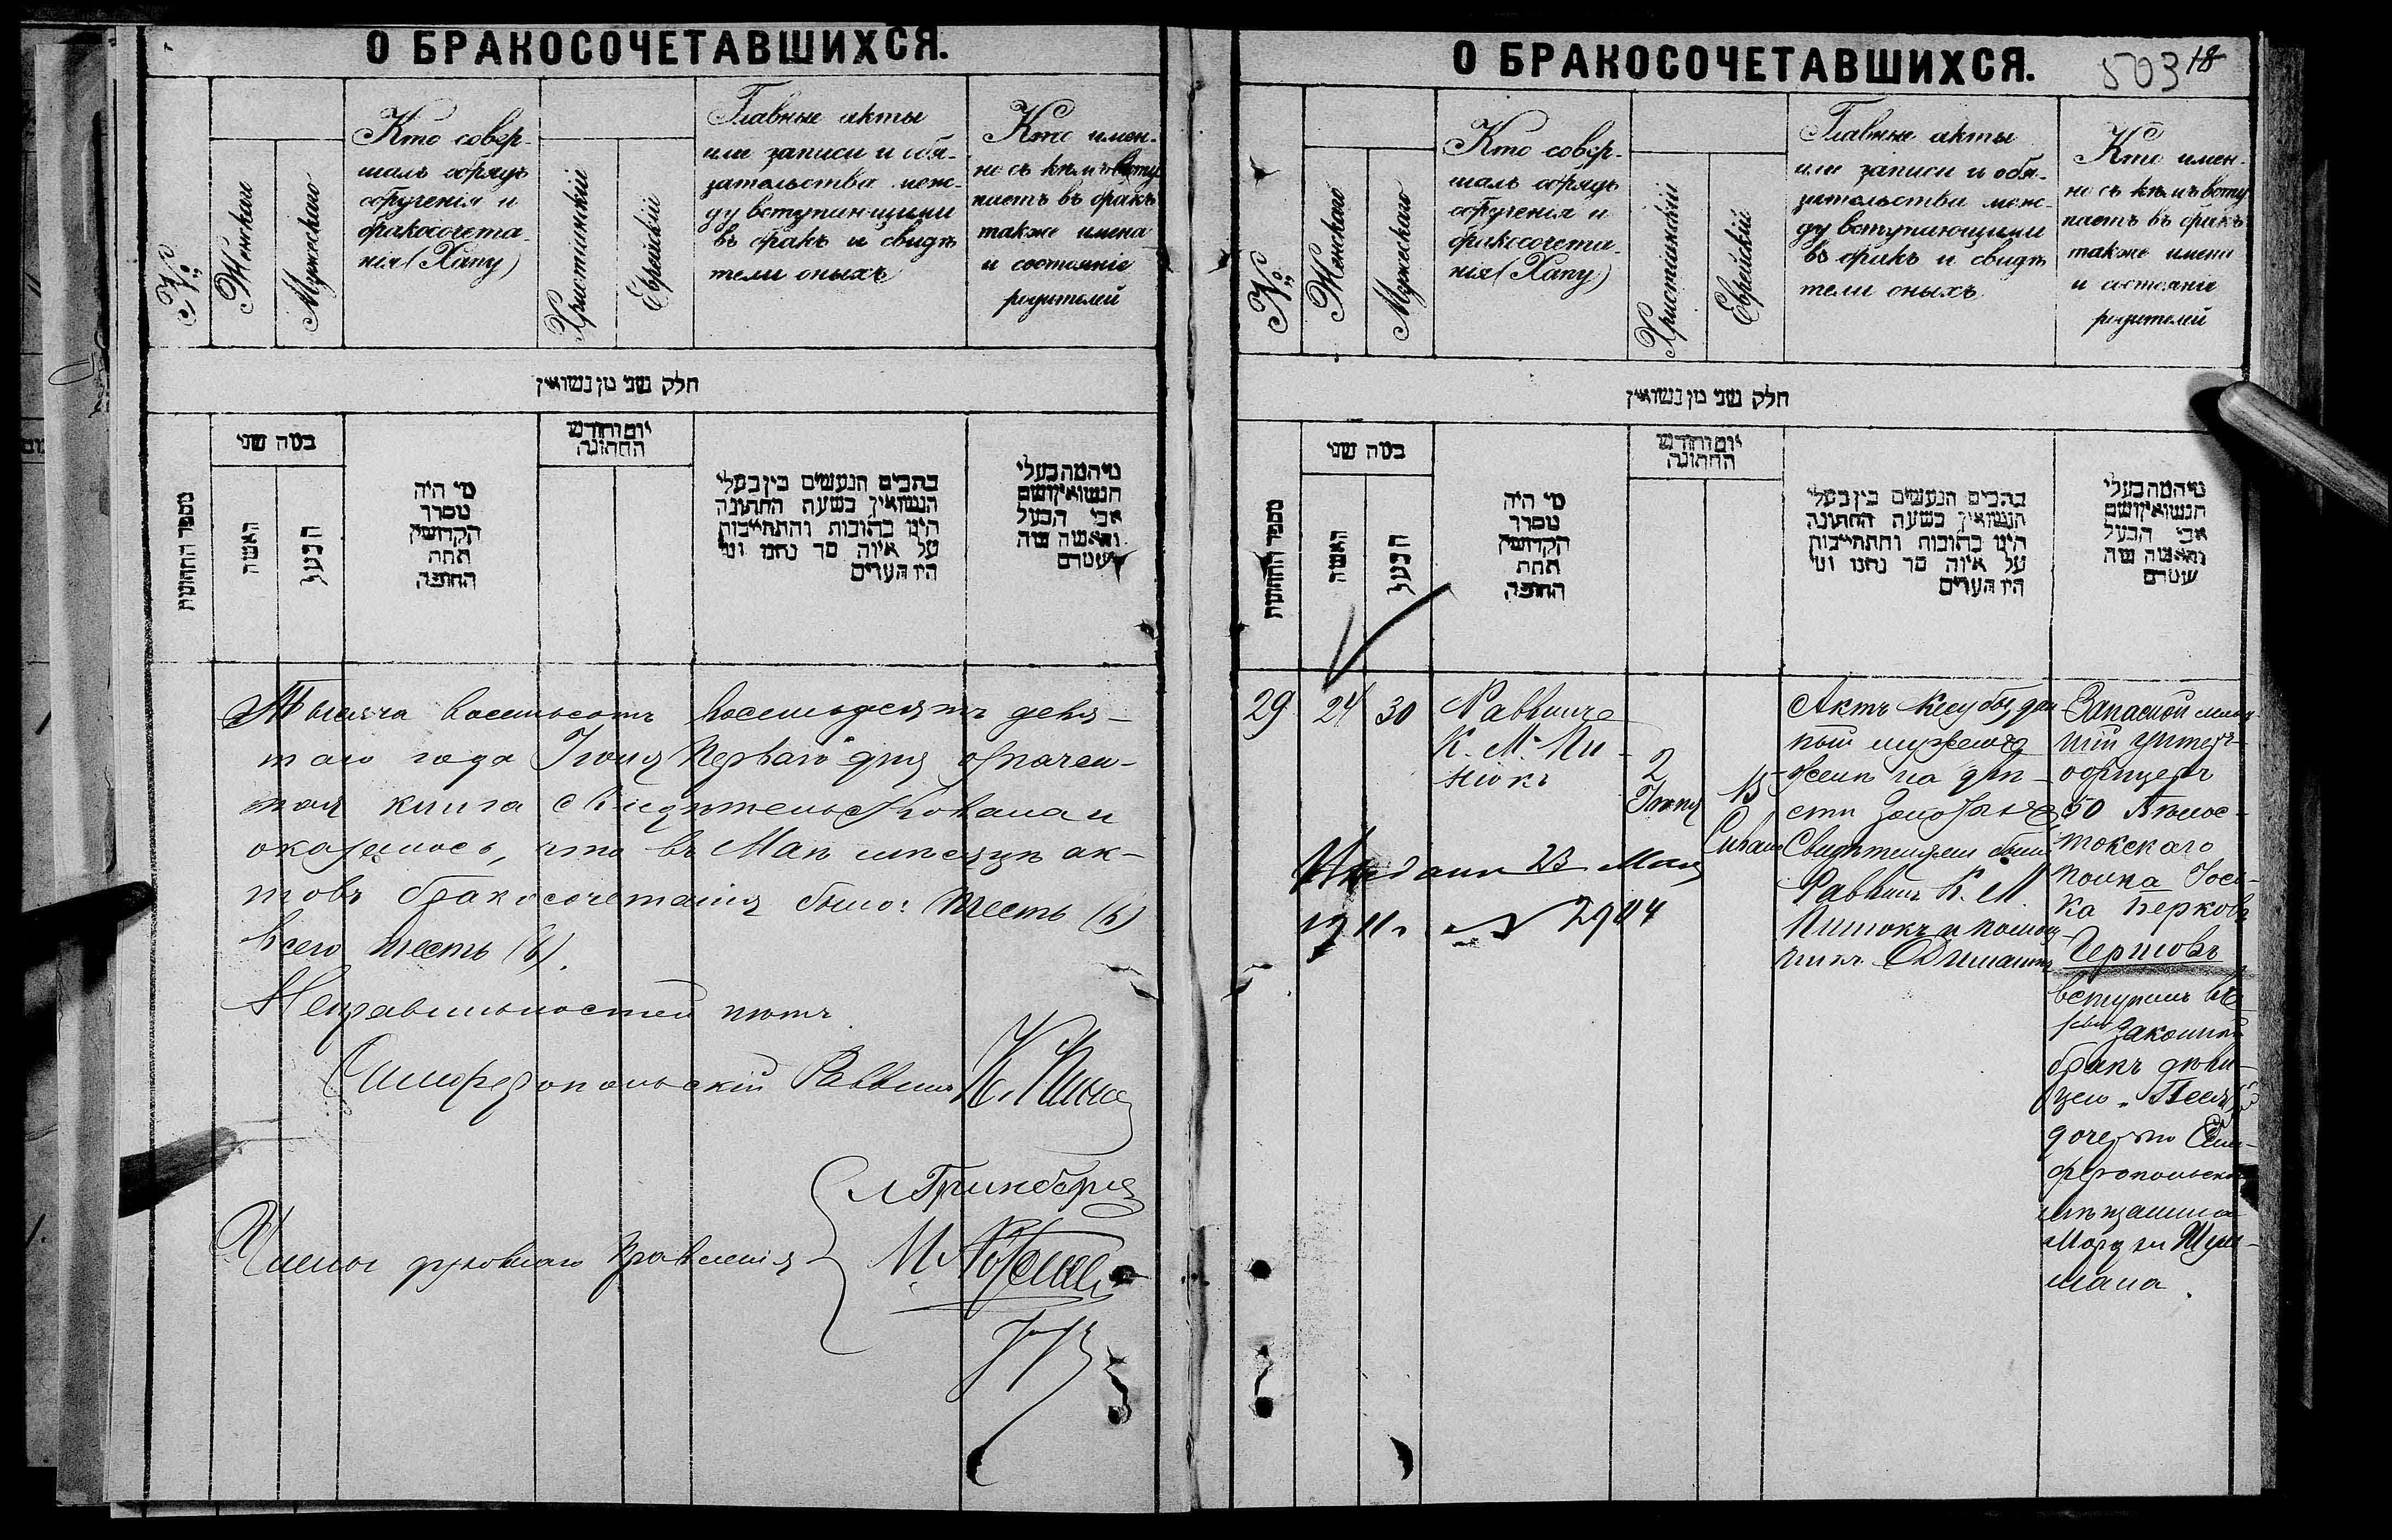 О БРАКОСОЧЕТАВШИХСЯ.
№
Женскаго
Мужескаго
Кто совер-
шалъ обрядъ
обрученія и
бракосочета-
нія (Хапу)
Христіанскій
Еврейскій
Главные акты
или записи и обя-
зательства меж-
ду вступающими
въ бракъ и свидѣ
тели оныхъ
Кто имен-
но съ кѣмъ всту
паетъ въ бракъ
также имена
и состояніе
родителей
חלק שני מן נשואין
מספר החתונות
כמה שני
האשה
הבעל
מי היה
מסדר
הקדושין
תחת
החופה
יום וחודש
החתונה
כתבים הנעשים בין בעלי
הנשואין בשעת החתונה
היינו כתובות והתחייבות
על איזה סך נתנו ומי
היו העדים
מי המה בעלי
הנשואין ושם
אבי הבעל
והאשה מה
שמם
Тысяча восемьсотъ восемьдесятъ девя-
таго года Іюня перваго дня брачен-
ная книга свидѣтельствована и
оказалось, что въ Маѣ мѣсяцѣ ак-
товъ бракосочетанія было: шесть (6)
всего шесть (6).
Неправильностей нѣтъ
Симферопольскій Раввинъ К. Пинюкъ
Члены духовнаго правленія
О БРАКОСОЧЕТАВШИХСЯ.
503 18
№
Женскаго
Мужескаго
Кто совер-
шалъ обрядъ
обрученія и
бракосочета-
нія (Хапу)
Христіанскій
Еврейскій
Главные акты
или записи и обя-
зательства меж-
ду вступающими
въ бракъ и свидѣ
тели оныхъ
Кто имен-
но съ кѣмъ всту
паетъ въ бракъ
также имена
и состояніе
родителей
חלק שני מן נשואין
מספר החתונות
כמה שני
האשה
הבעל
מי היה
מסדר
הקדושין
תחת
החופה
יום וחודש
החתונה
כתבים הנעשים בין בעלי
הנשואין בשעת החתונה
היינו כתובות והתחייבות
על איזה סך נתנו ומי
היו העדים
מי המה בעלי
הנשואין ושם
אבי הבעל
והאשה מה
שמם
29 24 30
Раввинъ
К. М. Пи-
нюкъ
2
Іюня
15
Сивана
Актъ Кесубы дан
ный мужемъ
женѣ на двѣ-
сти золотыхъ
Свидѣтелями были
Раввинъ К. М.
Пинюкъ и помощ-
никъ
Запасной млад-
шій унтеръ-
офицеръ
50 Бѣлос-
токскаго
полка Іось-
ка Берковъ
Черновъ
вступилъ въ
законный
бракъ дѣви-
цею Песей
дочерью Сим-
феропольскаго
мѣщанина
Шуль-
мана.
Выдана 23 Мая
1911г. № 2904